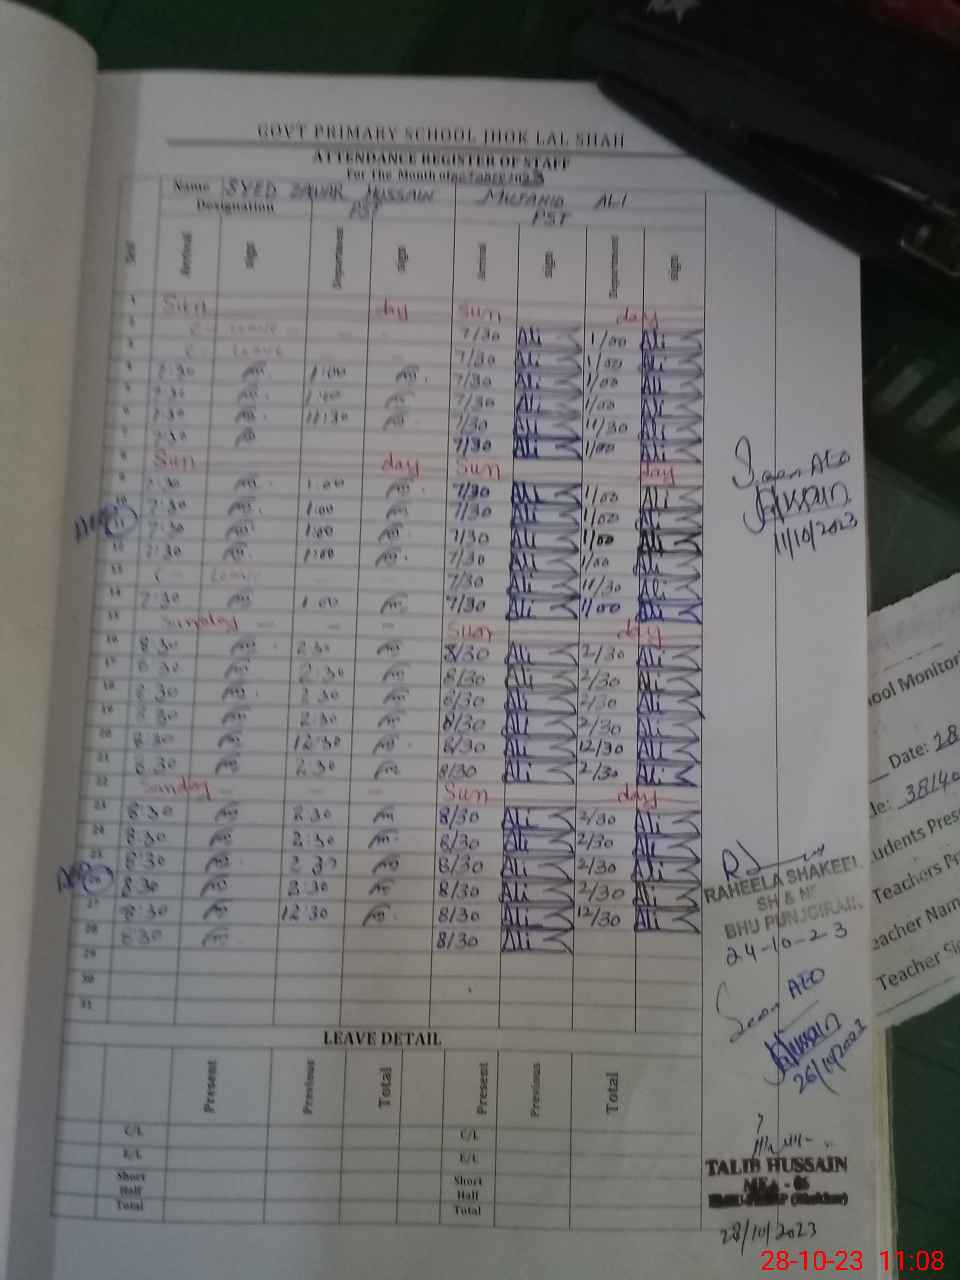 GOVT PRIMARY SCHOOL JHOK LAL SHAH
ATTENDANCE REGISTER OF STAFF
For The Month of october 2023
Name SYED ZAWAR HUSSAIN MUJAHID ALI
Designation PST PST
Arrival Sign Department Sign Arrival Sign Department Sign
1 Sun day Sun day
2 C- leave - - - 7/30 Ali 1/00 Ali
3 C- leave 7/30 Ali 1/00 Ali
4 7:30 1:00 7/30 Ali 1/00 Ali
5 7:30 1:00 7/30 Ali 1/00 Ali
6 7:30 11:30 7/30 Ali 11/30 Ali
7 7:30 7/30 Ali 1/00 Ali
8 Sun day Sun day
9 7:30 1:00 7/30 Ali 1/00 Ali
10 7:30 1:00 7/30 Ali 1/00 Ali
11 7:30 1:00 7/30 Ali 1/00 Ali
12 7:30 1:00 7/30 Ali 1/00 Ali
13 C- Leave - - 7/30 Ali 11/30 Ali
14 7:30 1:00 7/30 Ali 1/00 Ali
15 Sunday - - - Sun day
16 8:30 2:30 8/30 Ali 2/30 Ali
17 8:30 2:30 8/30 Ali 2/30 Ali
18 8:30 2:30 8/30 Ali 2/30 Ali
19 8:30 2:30 8/30 Ali 2/30 Ali
20 8:30 12:30 8/30 Ali 12/30 Ali
21 8:30 2:30 8/30 Ali 2/30 Ali
22 Sunday - - - Sun day
23 8:30 2:30 8/30 Ali 2/30 Ali
24 8:30 2:30 8/30 Ali 2/30 Ali
25 8:30 2:30 8/30 Ali 2/30 Ali
26 8:30 2:30 8/30 Ali 2/30 Ali
27 8:30 12:30 8/30 Ali 12/30 Ali
28 8:30 8/30 Ali
29
30
31
LEAVE DETAIL
Present Previous Total Present Previous Total
C/L C/L
E/L E/L
Short Short
Half Half
Total Total
Seen AEO
Hussain
11/10/2023
RAHEELA SHAKEEL
SH & N
BHU PUNJGIRAIN
24-10-23
Seen AEO
Hussain
26/10/2023
TALIB HUSSAIN
MEA - 06
28/10/2023
ool Monitori
Date: 28
de: 38140
udents Prese
Teachers Pr
eacher Nam
Teacher Si
28-10-23 11:08